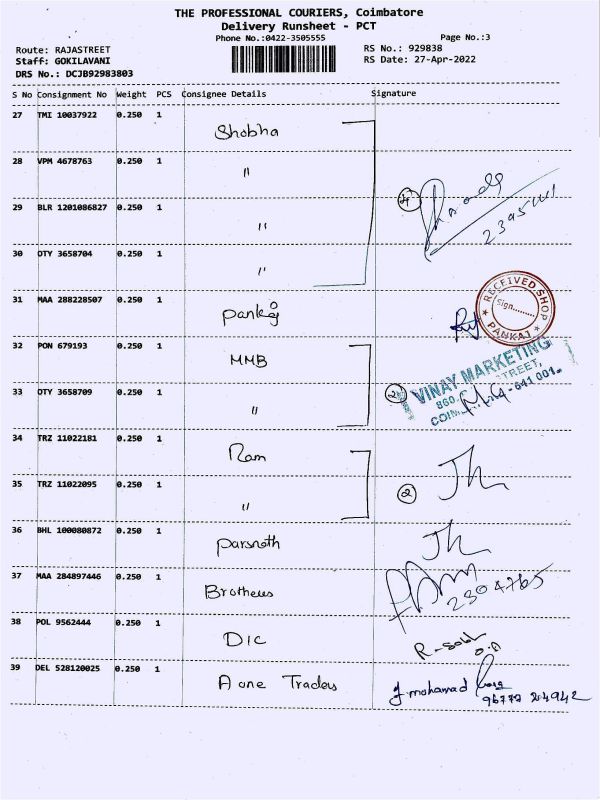 THE PROFESSIONAL COURIERS, Coimbatore
Delivery Runsheet - PCT
Phone No.:0422-3505555 Page No.:3
Route: RAJASTREET RS No.: 929838
Staff: GOKILAVANI RS Date: 27-Apr-2022
DRS No.: DCJB92983803
S No Consignment No Weight PCS Consignee Details Signature
27 TMI 10037922 0.250 1 Shobha
28 VPM 4678763 0.250 1 "
29 BLR 1201086827 0.250 1 " 4
30 OTY 3658704 0.250 1 "
31 MAA 288228507 0.250 1 Pankaj
RECEIVED SHOP
Sign.........
PANKAJ
32 PON 679193 0.250 1 MMB
33 OTY 3658709 0.250 1 " 2
VINAY MARKETING
STREET,
641 001.
34 TRZ 11022181 0.250 1 Ram
35 TRZ 11022095 0.250 1 " 2
36 BHL 100080872 0.250 1 Parsnath
37 MAA 284897446 0.250 1 Brothers
2304765
38 POL 9562444 0.250 1 DIC
39 DEL 528120025 0.250 1 A one Traders
J. mohamad